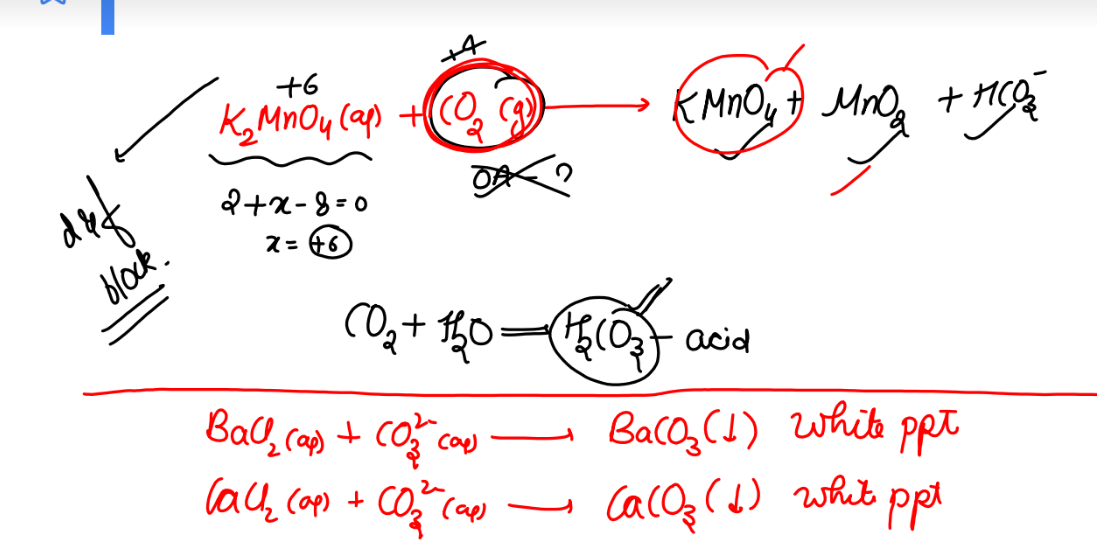 +4
+6
K₂MnO₄ (aq) + CO₂ (g) → KMnO₄ + MnO₂ + HCO₃⁻
OA - ?
2+x-8=0
x = +6
d & f
block.
CO₂ + H₂O = H₂CO₃ - acid
BaCl₂ (aq) + CO₃²⁻ (aq) → BaCO₃ (↓) white ppt
CaCl₂ (aq) + CO₃²⁻ (aq) → CaCO₃ (↓) whit ppt